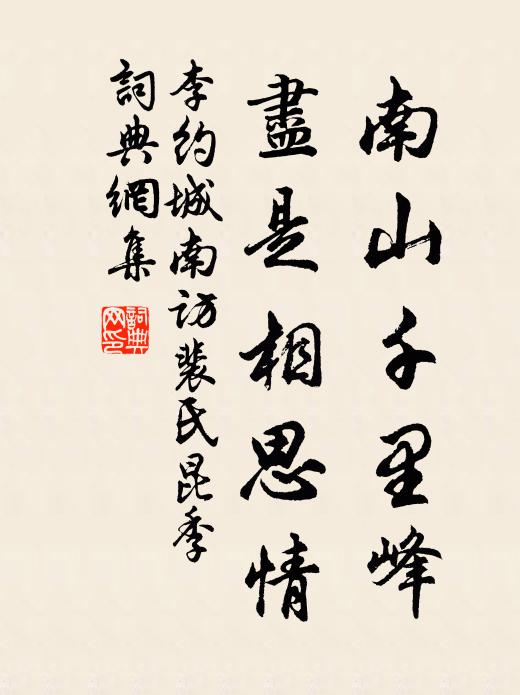 南山千里峰
盡是相思情
李約城南訪裴氏昆季
詞典網集
詞典网印